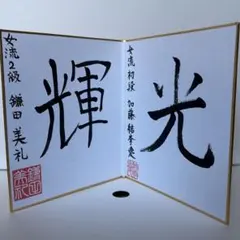 光
女流初段 加藤結李愛
輝
女流2級 鎌田美礼